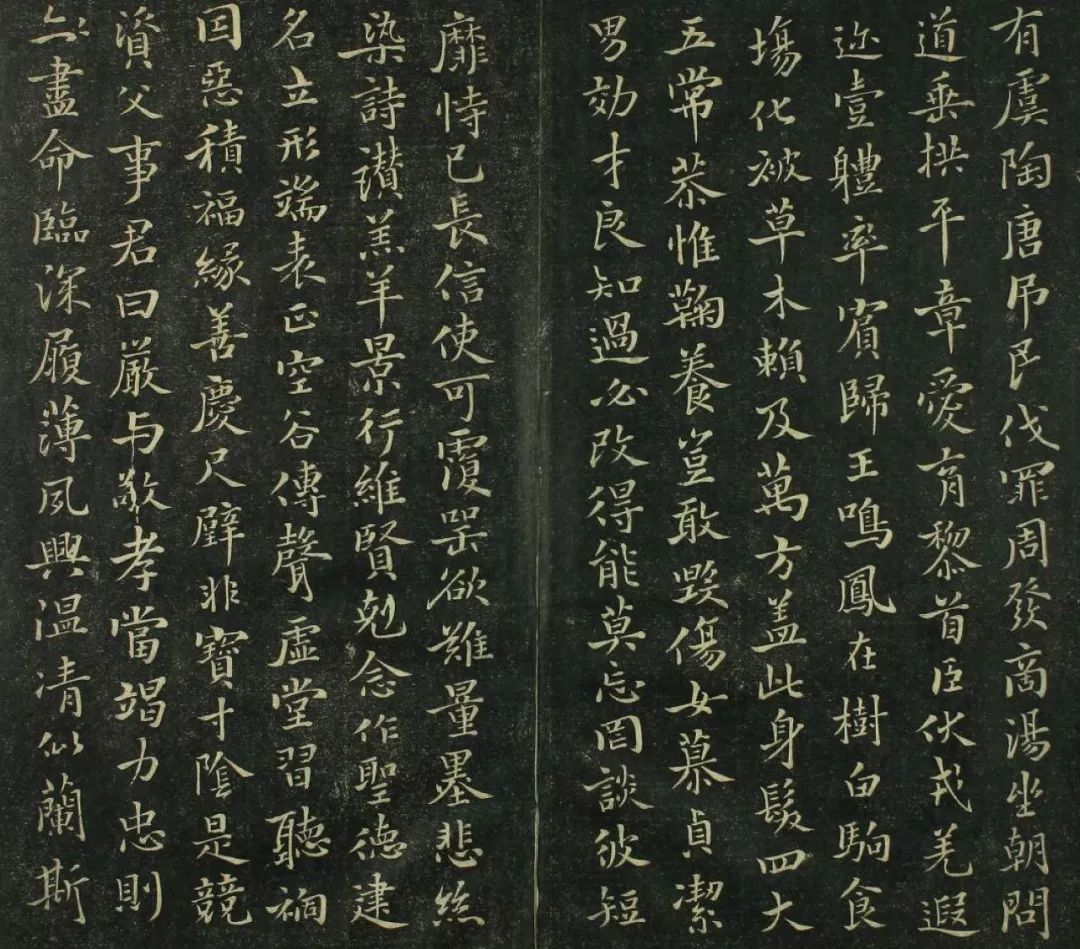 有虞陶唐吊民伐罪周發商湯坐朝問
道垂拱平章愛育黎首臣伏戎羌遐
迩壹體率賓歸王鳴鳳在樹白駒食
場化被草木賴及萬方盖此身髮四大
五常恭惟鞠養豈敢毀傷女慕貞潔
男効才良知過必改得能莫忘罔談彼短
靡恃己長信使可覆器欲難量墨悲絲
染詩讚羔羊景行維賢剋念作聖德建
名立形端表正空谷傳聲虛堂習聽禍
因惡積福緣善慶尺璧非寶寸陰是競
資父事君曰嚴与敬孝當竭力忠則
盡命臨深履薄夙興温清似蘭斯